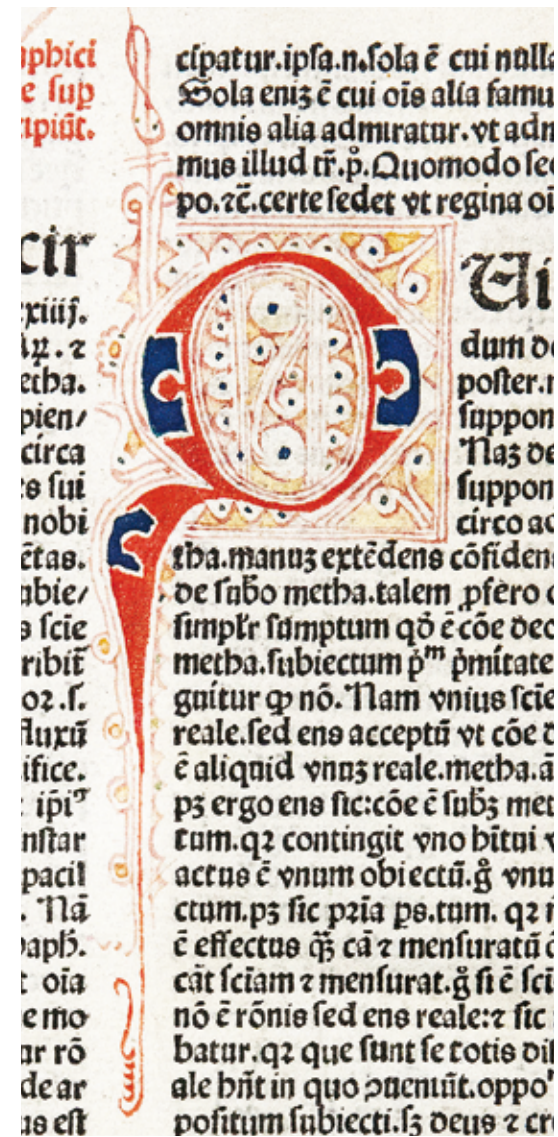 aphici
e sup̲
ipiūt.
cir
xxiiij.
etha.
pien/
circa
s sui
nobi
ētas.
abie/
s scie
ribit̄
oꝛ.ſ.
fluxū
ifice.
ipiꝰ
nſtar
pacil
. Nā
aph.
t oia
e mo
ur rō
de ar
us eſt
cipatur.ipſa.n.ſola ē cui nulla
Sola eniꝫ ē cui oīs alia famu
omnis alia admiratur.vt adm
mus illud tr̄.p̄.Quomodo ſed
po.⁊c̄.certe ſedet vt regina oi
Ui
dum de
poſter.
ſuppon
Naꝫ de
ſuppon
circo ad
tha.manuꝫ extēdens cōfiden
de ſubᵒ metha.talem ꝓfero c
ſimplr ſumptum qᵒ ē cōe dec
metha.ſubiectum pᵐ p̄mitate
guitur ꝙ nō. Nam vnius ſcie
reale.ſed ens acceptū vt cōe d
ē aliquid vnuꝫ reale.metha.
pꝫ ergo ens ſic:cōe ē ſubꝫ met
tum.qꝛ contingit vno bītui v
actus ē vnum obiectū.g̊ vnu
ctum.pꝫ ſic pꝛīa ps.tum. qꝛ
ē effectus cā ⁊ menſuratū
cāt ſciam ⁊ menſurat.g̊ ſi ē ſci
nō ē rōnis ſed ens reale:⁊ ſic
batur.qꝛ que ſunt ſe totis di
ale bn̄t in quo ꝯueniūt.oppoᵗ
poſitum ſubiecti.ſꝫ deus ⁊ cr